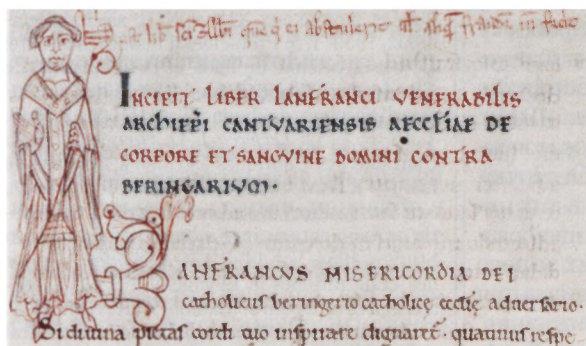 Iste lib' sc̄i Albi que q' ei abstulerit aut aliq̄ fraudē in
INCIPIT LIBER LANFRANCI VENERABILIS
ARCHIEP̄I CANTVARIENSIS ÆCCL̄IAE DE
CORPORE ET SANGVINE DOMINI CONTRA
BERINGARIVM·
LANFRANCVS MISERICORDIA DEI
catholicus beringerio catholicę ecclīę adversario·
Si divina pietas cordi tuo inspirare dignaret̄· quatinus respe